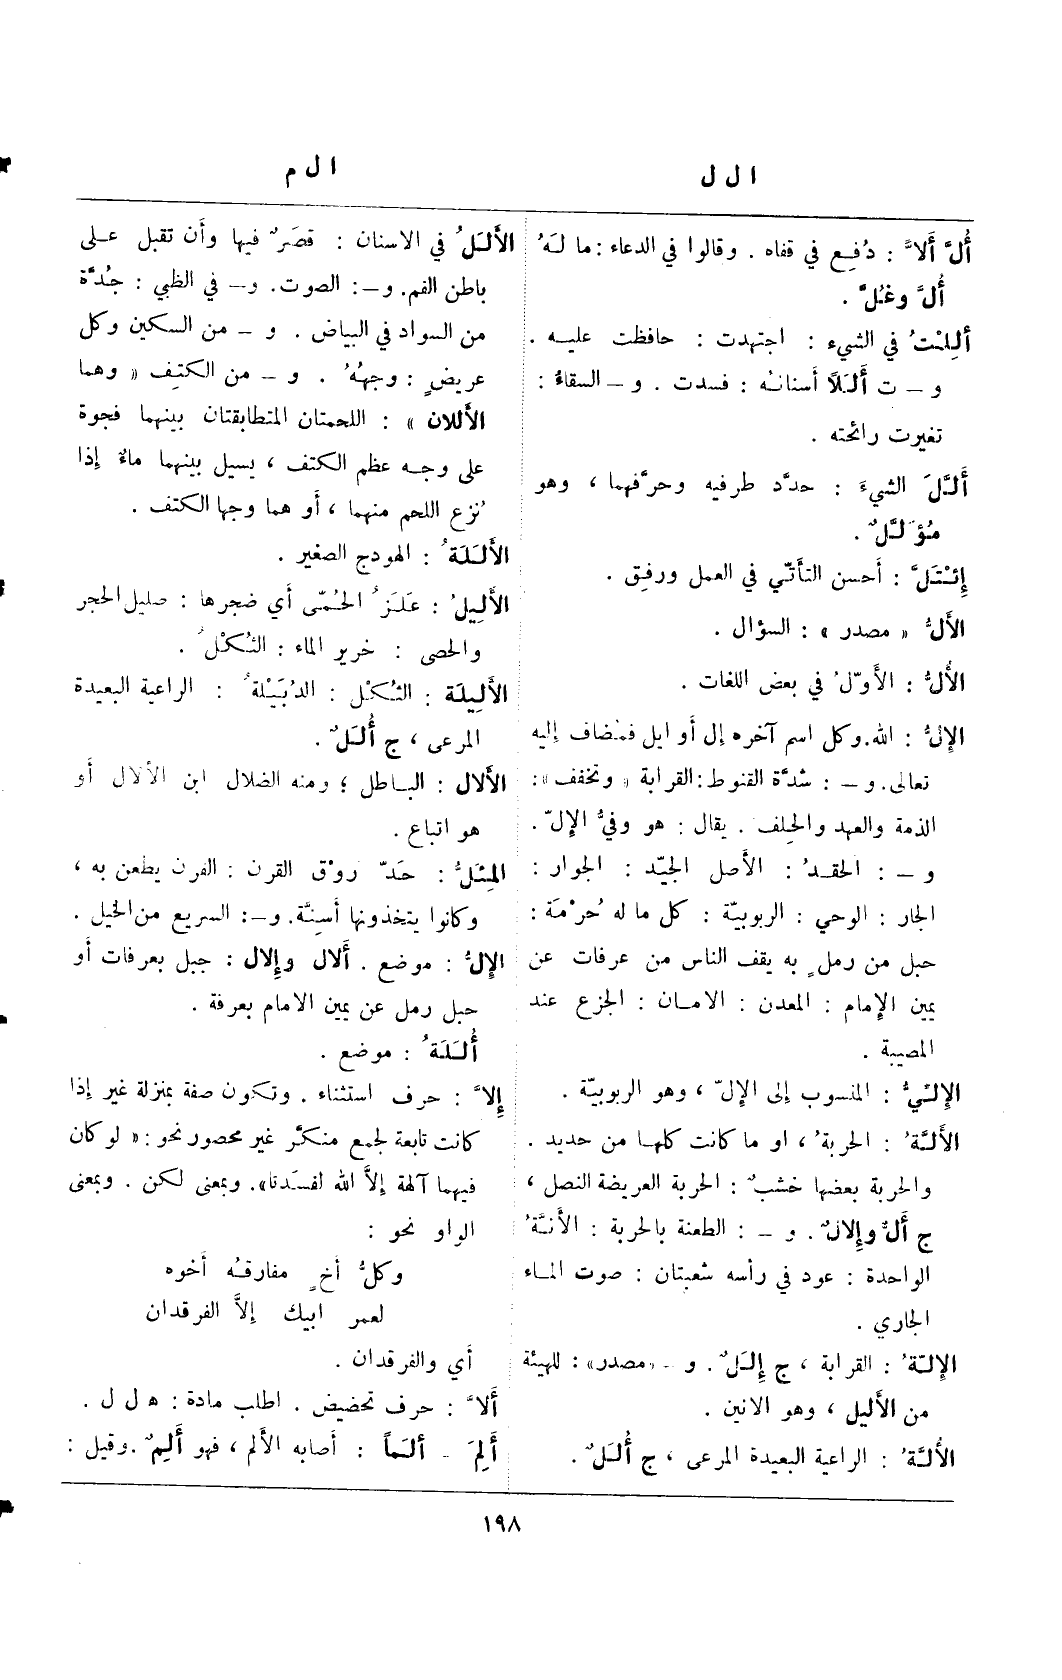 ا ل ل
ا ل م
أُلَّ أَلاًّ : دُفِع في قفاه . وقالوا في الدعاء : ما لَهُ
أُلَّ وغُلَّ .
أَلِلْتُ في الشيء : اجتهدت : حافظت عليه .
و – ت أَلَلاً أسنانُه : فسدت . و – السقاءُ :
تغيرت رائحته .
أَلَّلَ الشيءَ : حدَّد طرفيه وحرَّفهما ، وهو
مُؤَلَّلٌ .
إِئْتَلَّ : أحسن التأتّي في العمل ورفِق .
الأَلُّ « مصدر » : السؤال .
الأُلُّ : الأَوّلُ في بعض اللغات .
الإِلُّ : الله.وكل اسم آخره إل أو ايل فمُضاف إليه
تعالى. و – : شدَّة القنوط : القرابة « وتخفف » :
الذمة والعهد والحِلف . يقال : هو وفيُّ الإِلّ .
و – : الحقدُ : الأصل الجيّد : الجوار :
الجار : الوحي : الربوبيّة : كل ما له حُرْمَة :
حبل من رملٍ به يقف الناس من عرفات عن
يمين الإِمام : المعدن : الامان : الجزع عند
المصيبة .
الإِلّيُّ : المنسوب إلى الإِلّ ، وهو الربوبيّة .
الأَلَّةُ : الحربةُ ، او ما كانت كلها من حديد .
والحربة بعضها خشبٌ : الحربة العريضة النصل ،
ج أَلٌّ وإِلالٌ . و – : الطعنة بالحربة : الأَنَّةُ
الواحدة : عود في رأسه شعبتان : صوت الماء
الجاري .
الإِلّةُ : القرابة ، ج إِلَلٌ . و – «مصدر» : للهيئة
من الأَليل ، وهو الانين .
الأُلَّةُ : الراعية البعيدة المرعى ، ج أُلَلٌ .
الأَلَلُ في الاسنان : قصَرٌ فيها وأَن تقبل على
باطن الفم. و–: الصوت. و– في الظبي : جُدَّة
من السواد في البياض . و – من السكين وكل
عريضٍ : وجههُ . و – من الكتِف « وهما
الأَلَلان » : اللحمتان المتطابقتان بينهما فجوة
على وجه عظم الكتف ، يسيل بينهما ماءٌ إذا
نُزع اللحم منهما ، أو هما وجها الكتف .
الأَلَلَةُ : الهودج الصغير .
الأَلِيلُ : عَلَزُ الحُمّى أي ضجرها : صليل الحجر
والحصى : خرير الماء : الثُكْلُ .
الأَلِيلَة : الثُكْل : الدُبَيْلةُ : الراعية البعيدة
المرعى ، ج أُلَلٌ .
الأَلال : الباطل ؛ ومنه الضلال ابن الأَلال أو
هو اتباع .
المِئَلُّ : حَدّ رَوْق القرن : القرن يطعن به ،
وكانوا يتخذونها أسِنَّة. و–: السريع من الخيل .
الإِلُّ : موضع . أَلال وإِلال : جبل بعرفات أو
حبل رمل عن يمين الامام بعرفة .
أُلَلَةُ : موضع .
إِلاَّ : حرف استثناء . وتكون صفة بمنزلة غير إذا
كانت تابعة لجمع منكَّر غير محصور نحو : « لو كان
فيهما آلهة إلاَّ الله لفسَدتا». وبمعنى لكن . وبمعنى
الواو نحو :
وكلُّ أخٍ مفارقُه أخوه
لعمر ابيك إلاَّ الفرقدان
أي والفرقدان .
أَلاَّ : حرف تحضيض . اطلب مادة : ه ل ل .
أَلِمَ – أَلَماً : أصابه الألم ، فهو أَلِمٌ . وقيل :
١٩٨